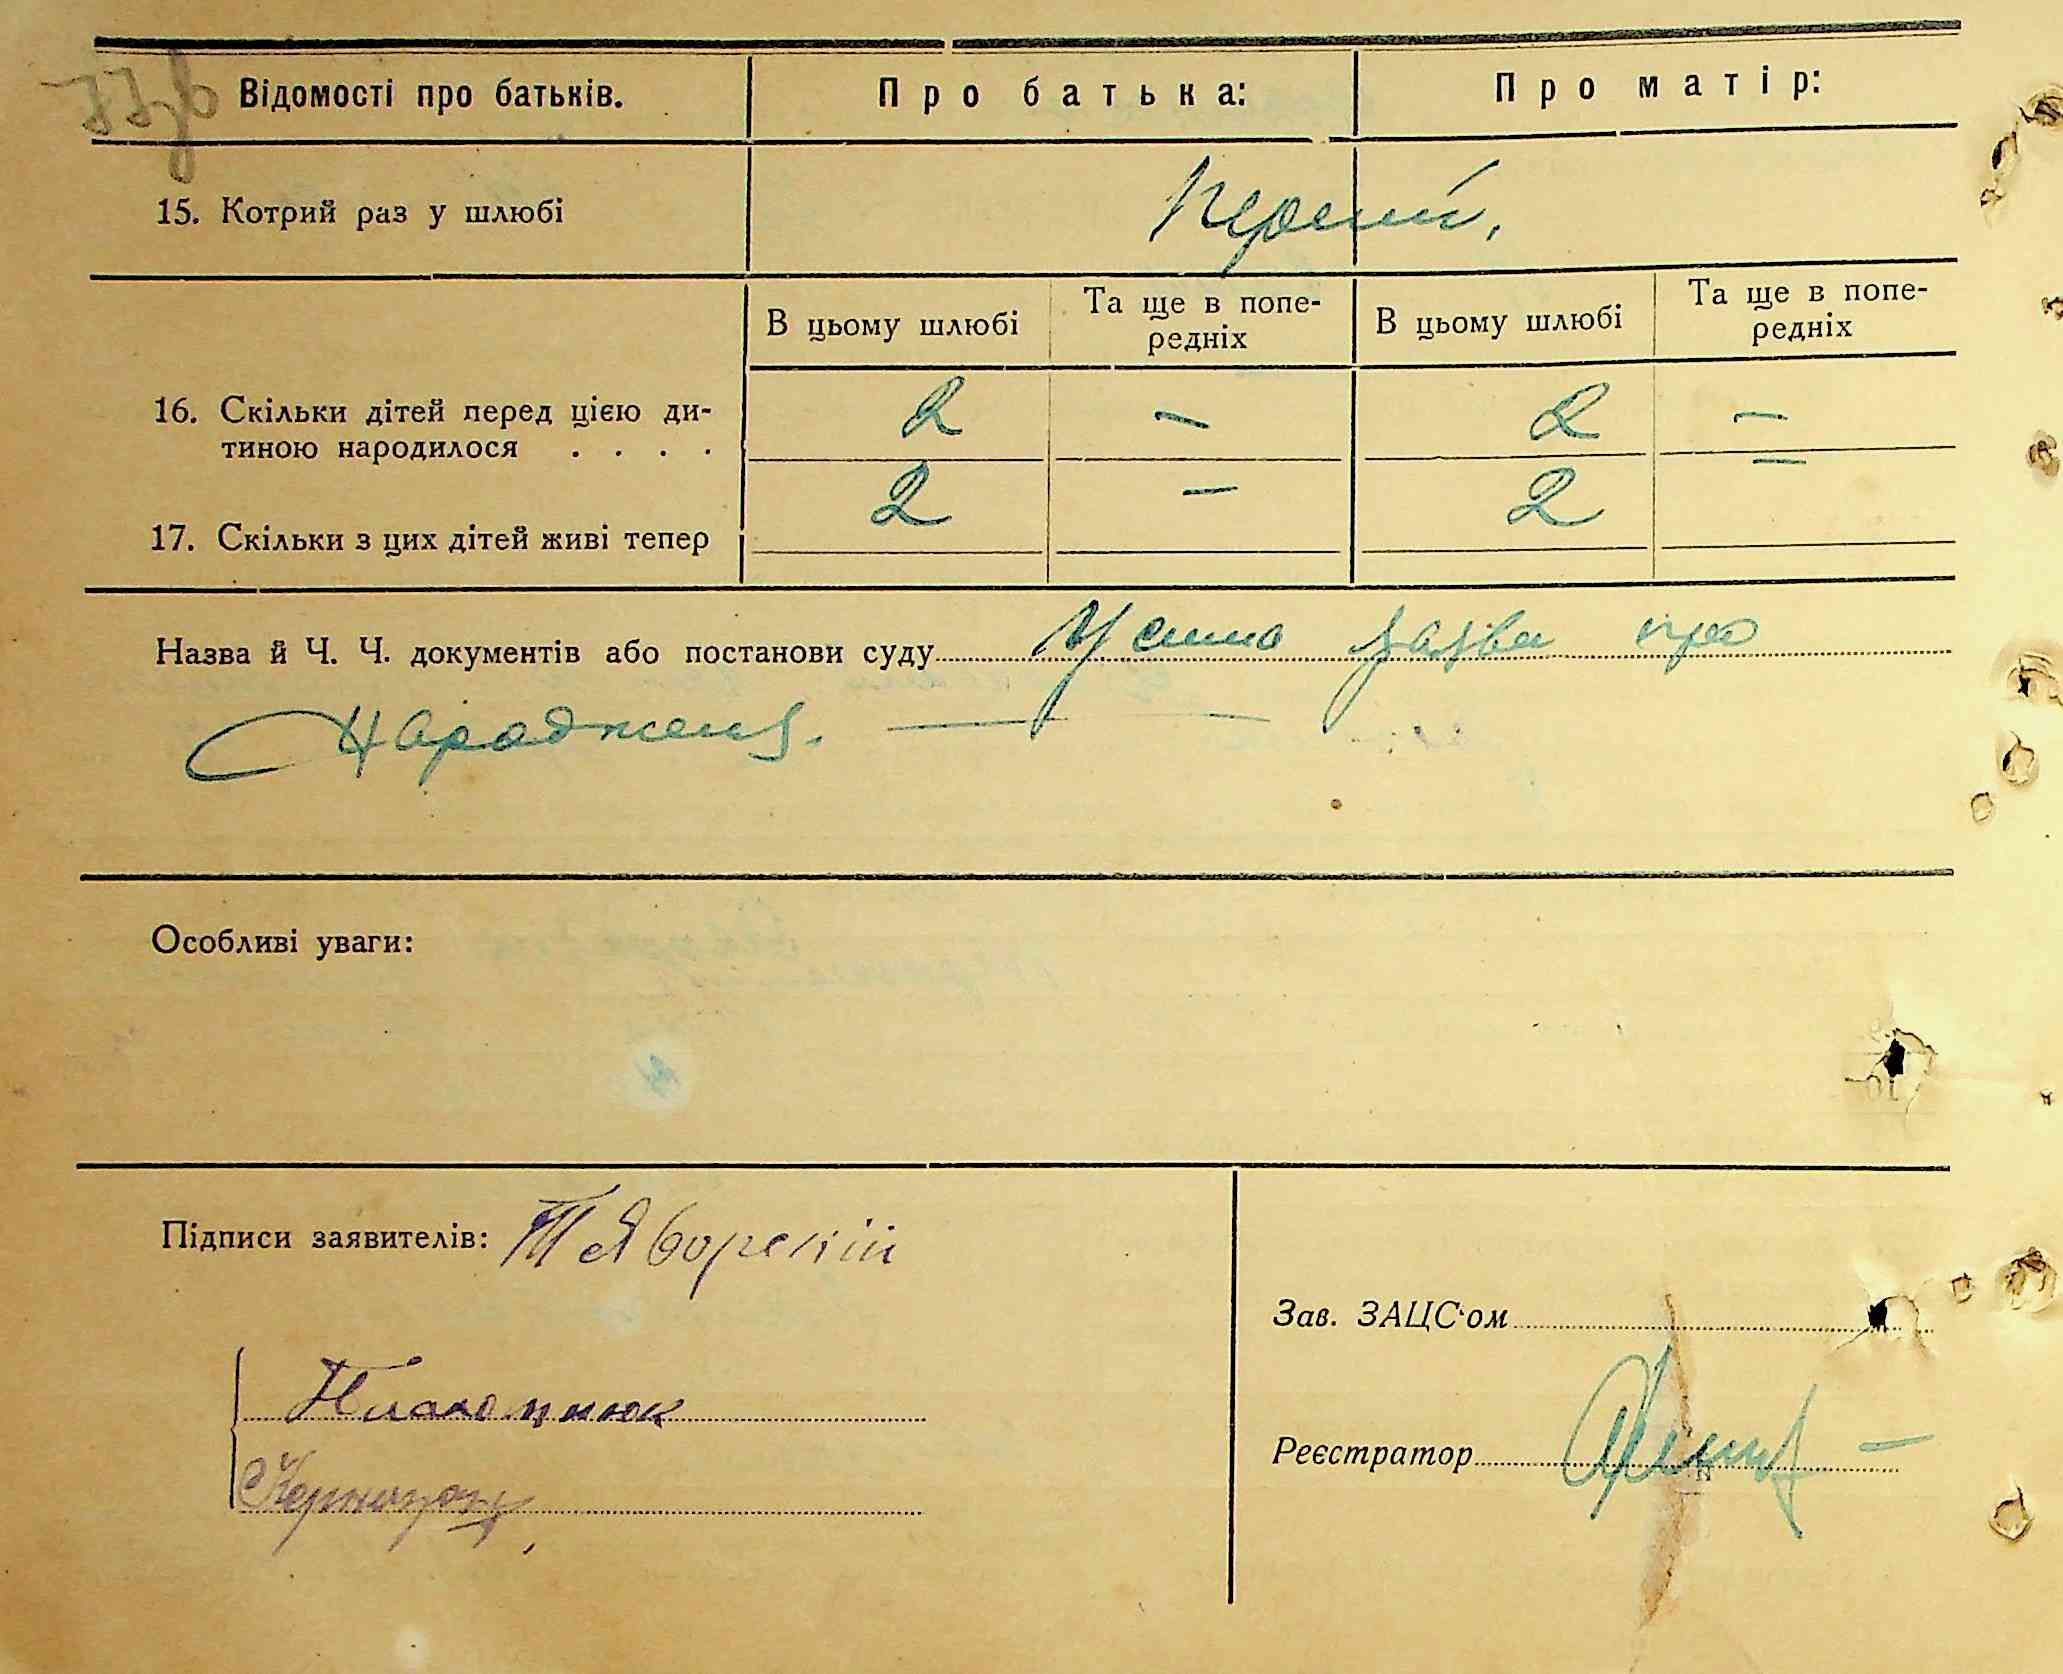 Відомості про батьків.
Про батька:
Про матір:
15. Котрий раз у шлюбі
Первий,
В цьому шлюбі
Та ще в попе-
редніх
В цьому шлюбі
Та ще в попе-
редніх
16. Скільки дітей перед цією ди-
тиною народилося . . . .
2 – 2 –
17. Скільки з цих дітей живі тепер
2 – 2 –
Назва й Ч. Ч. документів або постанови суду Усна заява про
народження. —
Особливі уваги:
Підписи заявителів: Яворский
Зав. ЗАЦС'ом
Реєстратор